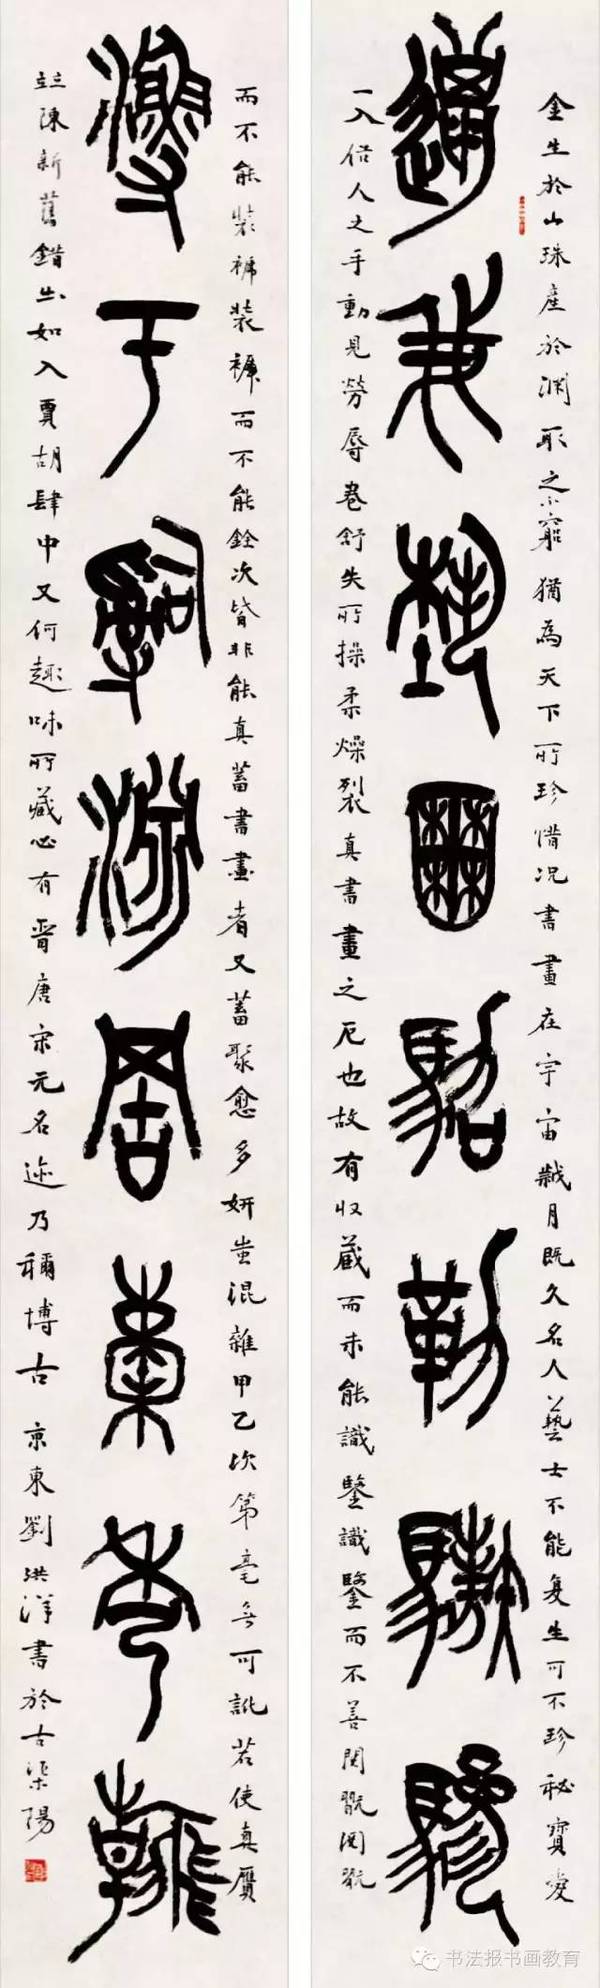 金生於山珠產於淵取之不窮猶為天下所珍惜況書畫在宇宙歲月既久名人藝士不能复生可不珍秘寶愛
秉 勒
一入俗人之手動見勞辱卷舒失所操柔燥裂真書畫之厄也故有收藏而未能識鑒識鑒而不善閱翫閱翫
而不能裝褫裝褫而不能銓次皆非能真蓄書畫者又蓄聚愈多妍蚩混雜甲乙次第毫无可訛若使真贗
于辭淵周 秀翰
並陳新舊錯出如入賈胡肆中又何趣味所藏必有晉唐宋元名迹乃稱博古 京東劉洪洋書於古渠陽
书法报书画教育